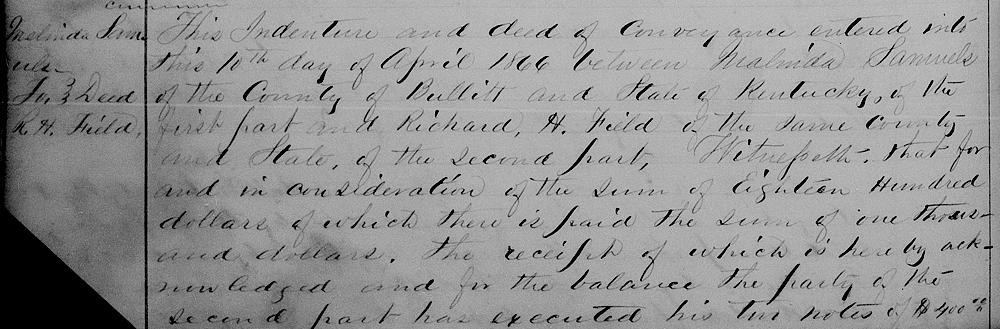 Malinda Sam-
uels
To } Deed
R. H. Field,
This Indenture and deed of Conveyance entered into
this 10th day of April 1866 between Malinda Samuels
of the County of Bullitt and State of Kentucky, of the
first part and Richard, H. Field of the same County
and State, of the second part, Witnesseth. that for
and in consideration of the sum of Eighteen Hundred
dollars of which there is paid the sum of one thous-
and dollars. the receipt of which is here by ack-
nowledged and for the balance the party of the
second part has executed his two notes of $400.00